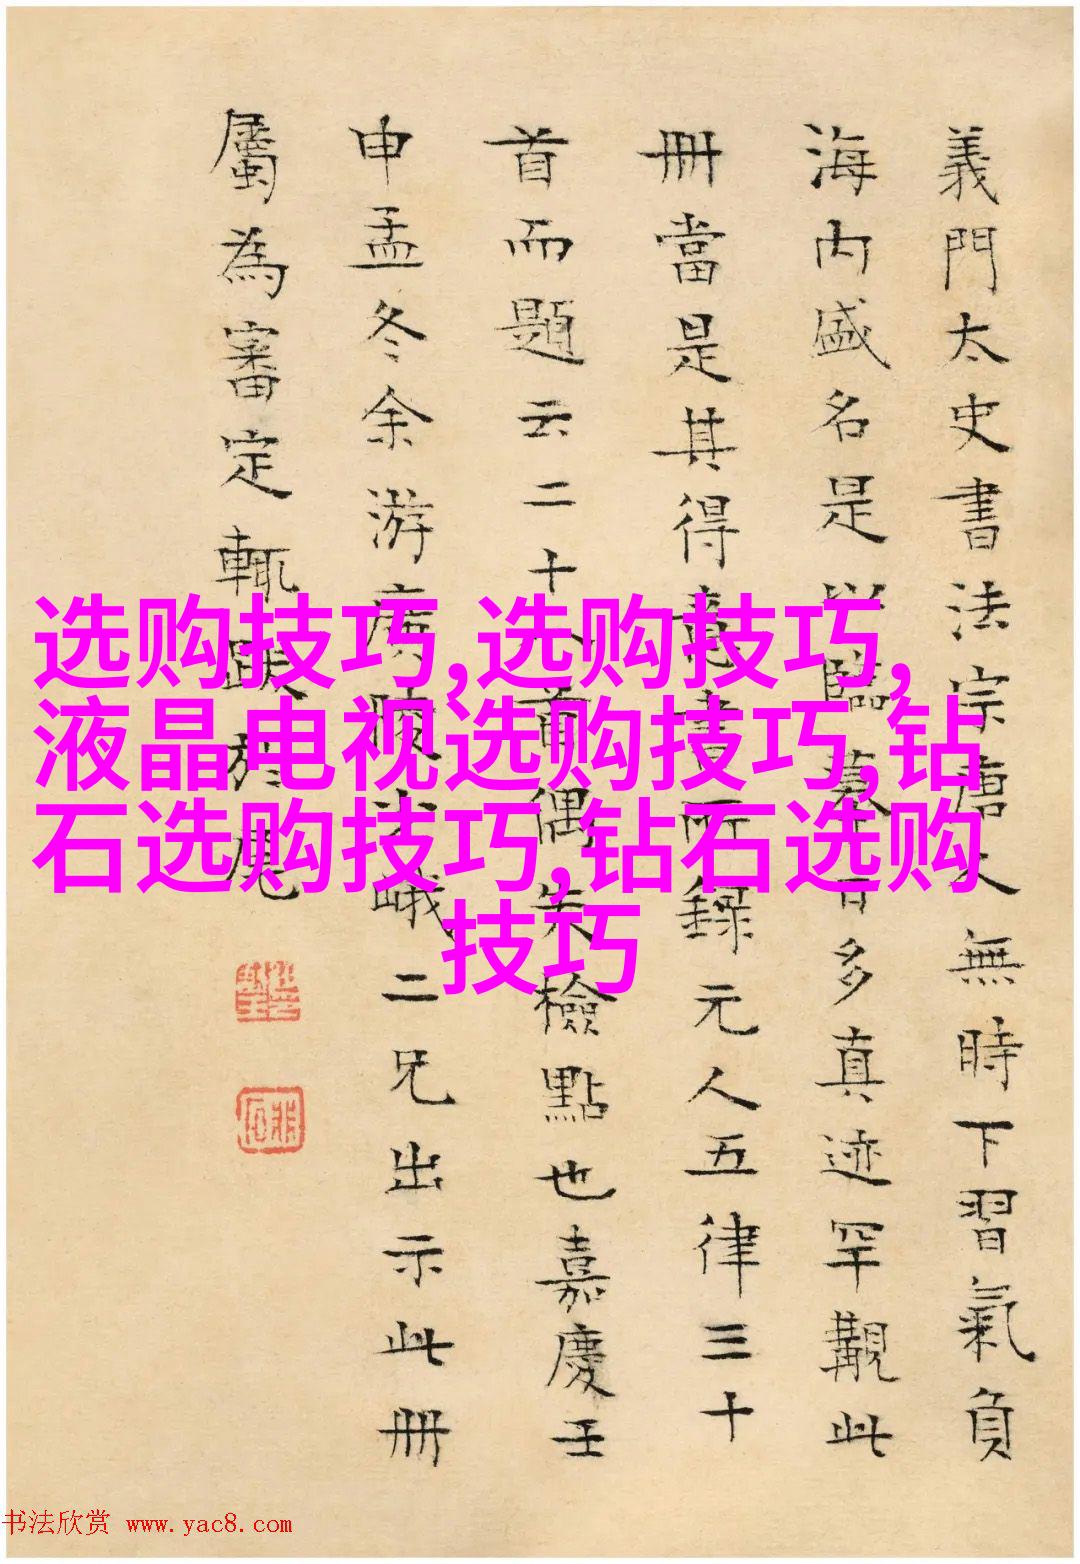 義門太史書法宗虞文無時下習氣負
海内盛名是以臨摹者多真迹罕覯此
冊當是其得意書所録元人五律三十
首而題云二十八首偶失檢點也嘉慶壬
申孟冬余游廣陵少峨二兄出示此冊
屬為審定輒跋於尾
选购技巧,选购技巧,
液晶电视选购技巧,钻
石选购技巧,钻石选购
技巧
书法欣赏 www.yac8.com